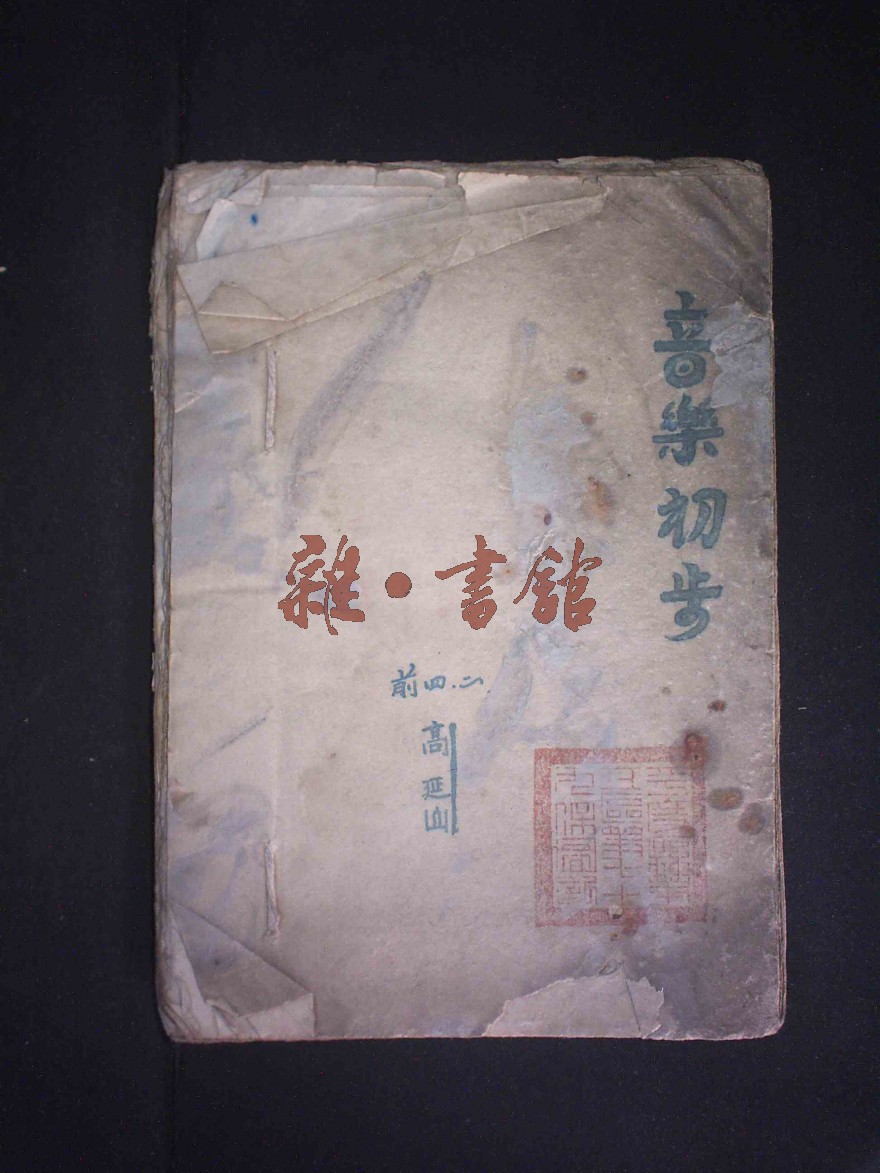 音樂初步
雜·書館
前四.二.
高延山